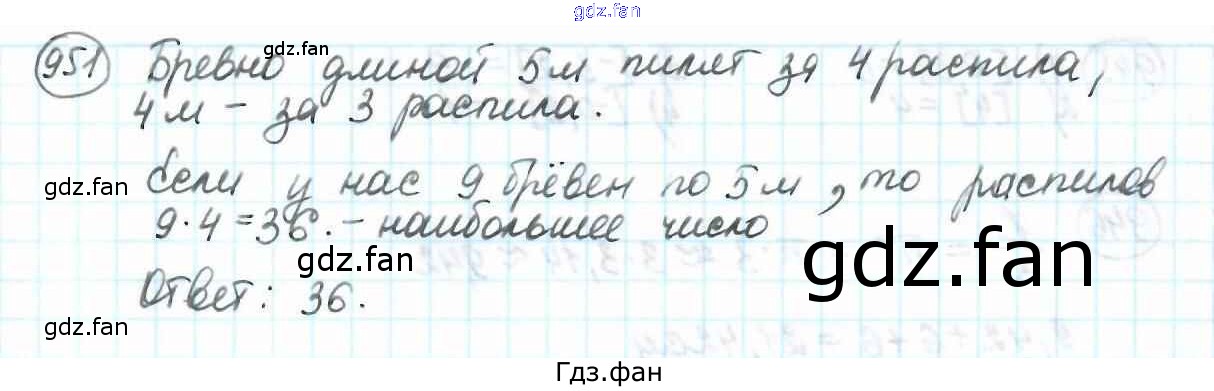 gdz.fan
951 Бревно длиной 5м пилят за 4 распила,
gdz.fan
4м - за 3 распила.
gdz.fan
Если у нас 9 брёвен по 5м, то распилов
9·4=36. - наибольшее число
gdz.fan
gdz.fan
Ответ: 36.
gdz.fan
Гдз.фан